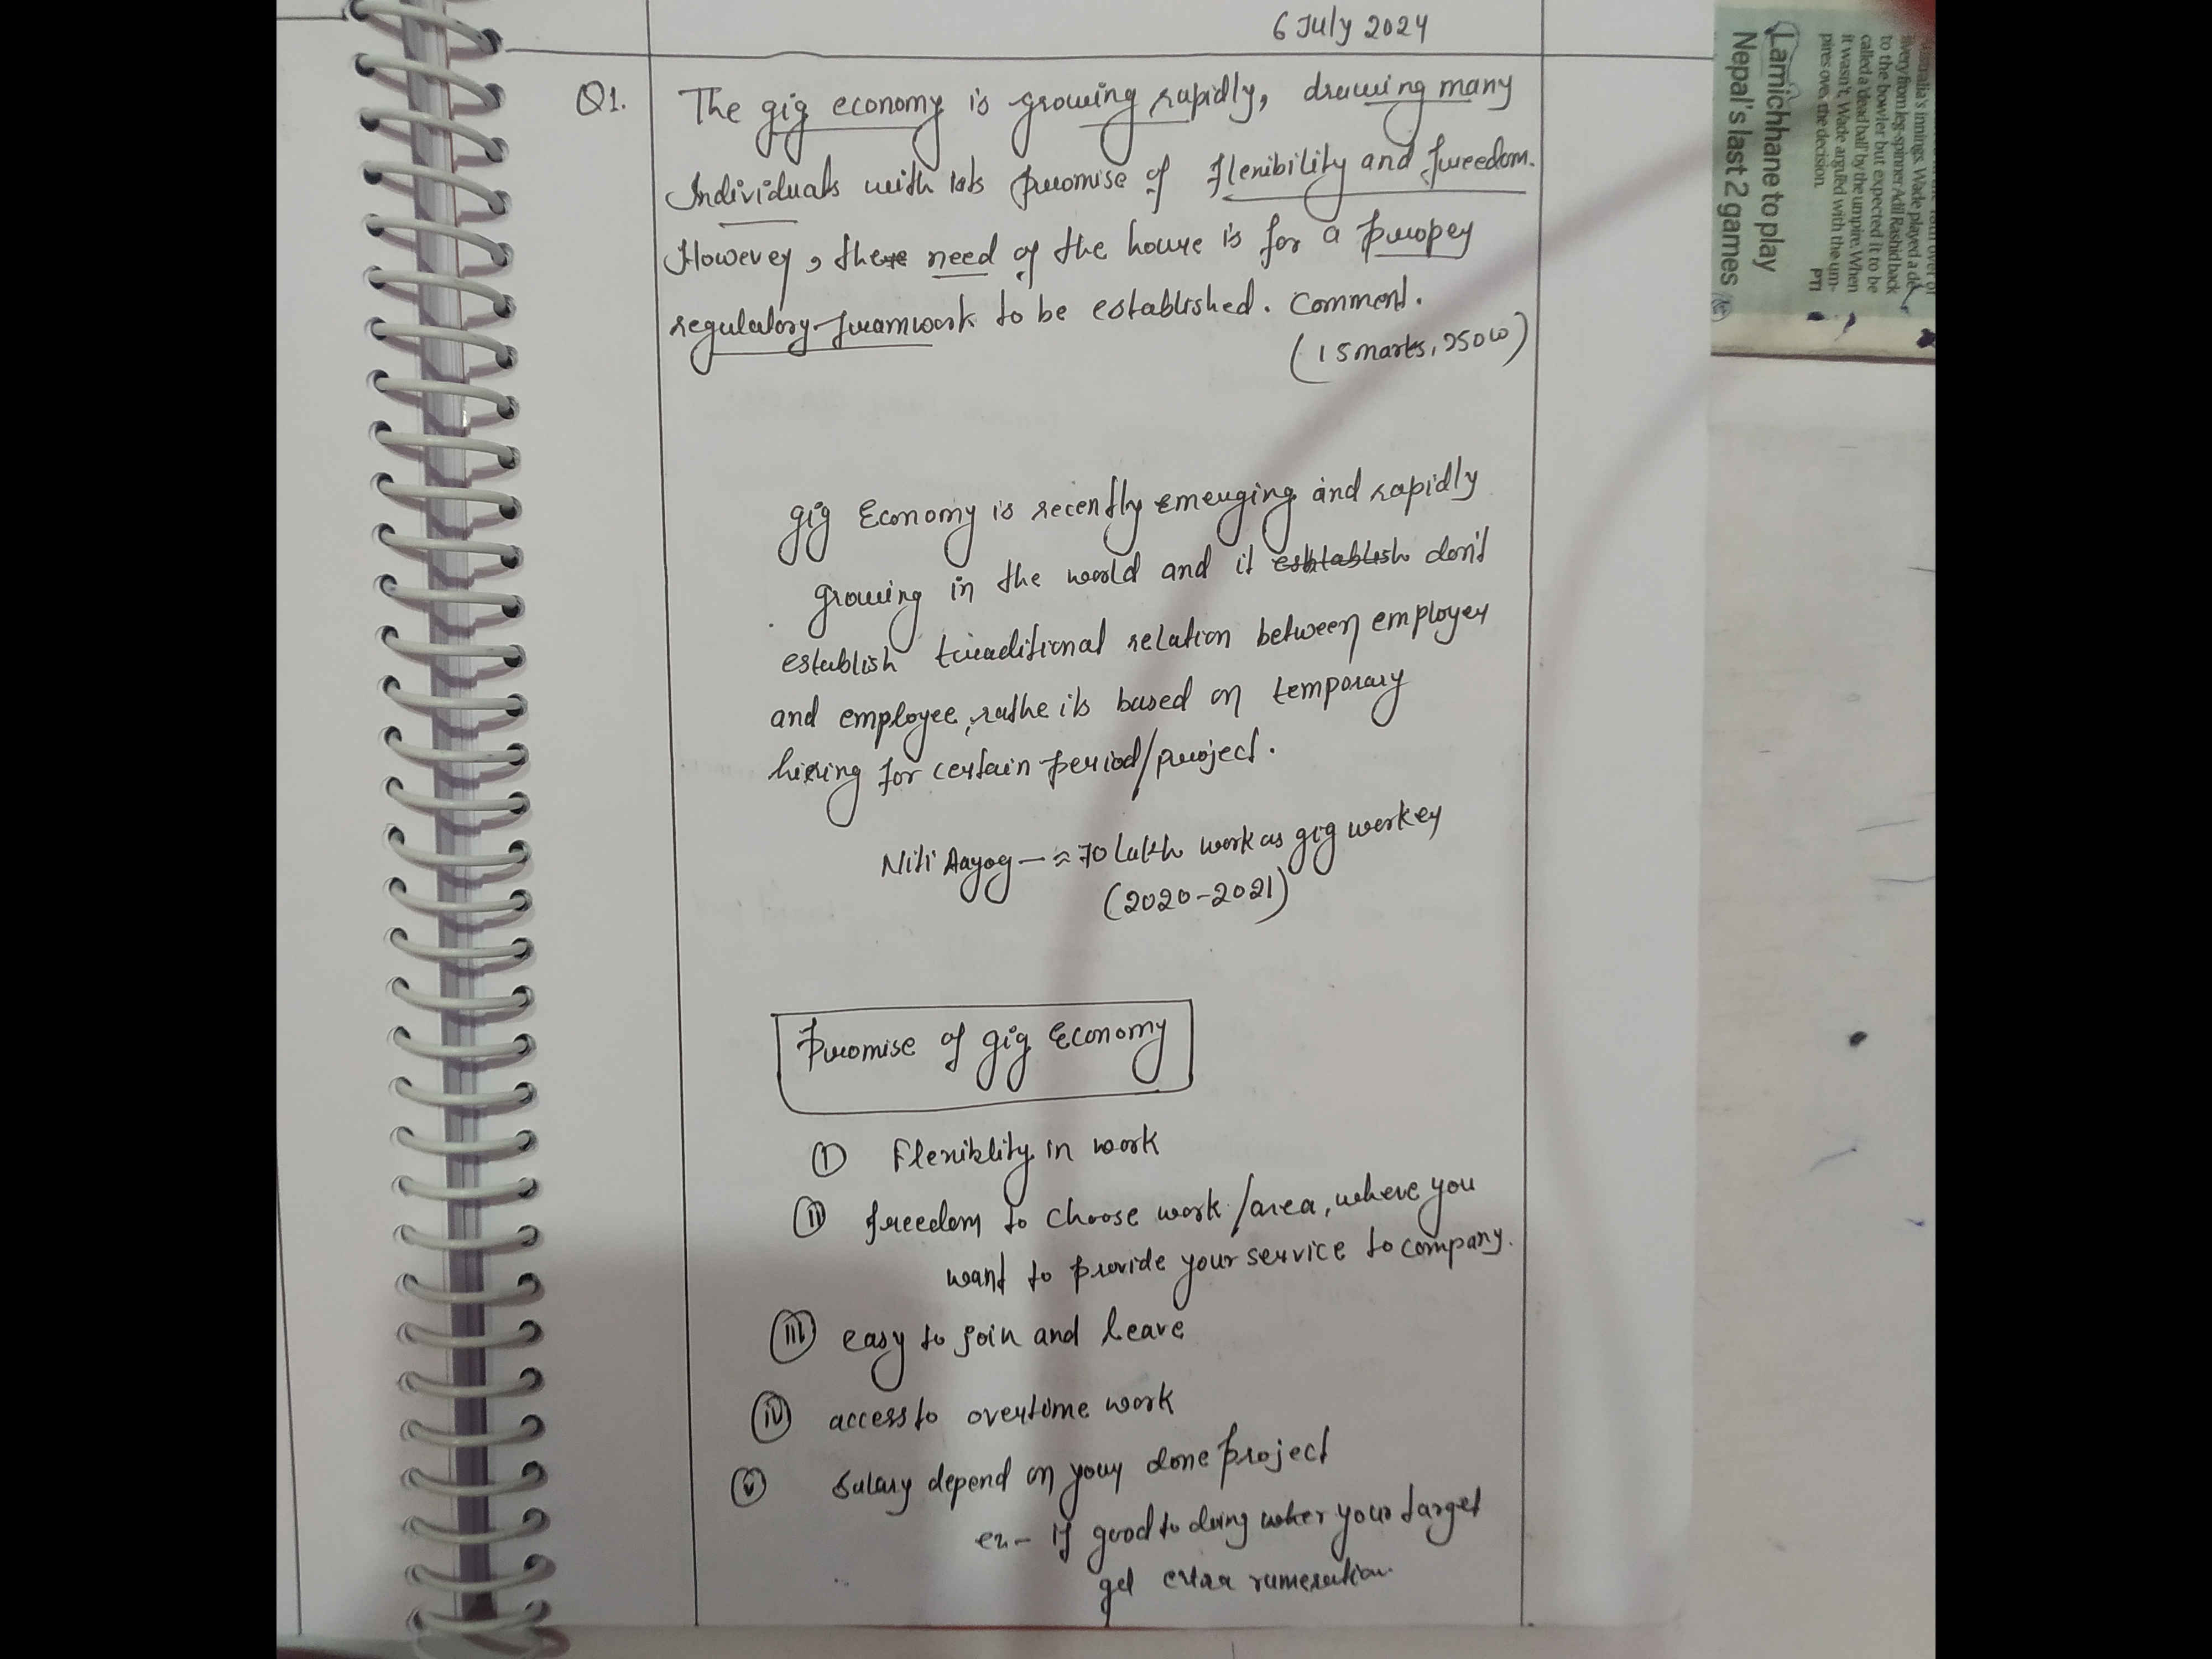 6 July 2024
Q1. The gig economy is growing rapidly, drawing many
Individuals with its promise of flexibility and freedom.
However, there need of the houre is for a proper
regulatory framwork to be established. Comment.
(15 marks, 250 w)
gig Economy is recently emerging and rapidly
growing in the world and it establish don't
establish traditional relation between employer
and employee, rathe its based on temporary
hiering for certain period/project.
Niti Aayog — ≈ 70 Lakh work as gig worker
(2020-2021)
Promise of gig Economy
(i) Flexiblity in work
(ii) freedom to choose work/area, where you
want to provide your service to company.
(iii) easy to join and leave
(iv) access to overtime work
(v) Salary depend on your done project
ex- If good to doing your target
get extra rumeration.
Lamichhane to play
Nepal's last 2 games
tralia's innings. Wade played a de-
livery from leg-spinner Adil Rashid back
to the bowler but expected it to be
called a 'dead ball' by the umpire. When
it wasn't, Wade argued with the um-
pires over the decision. PTI